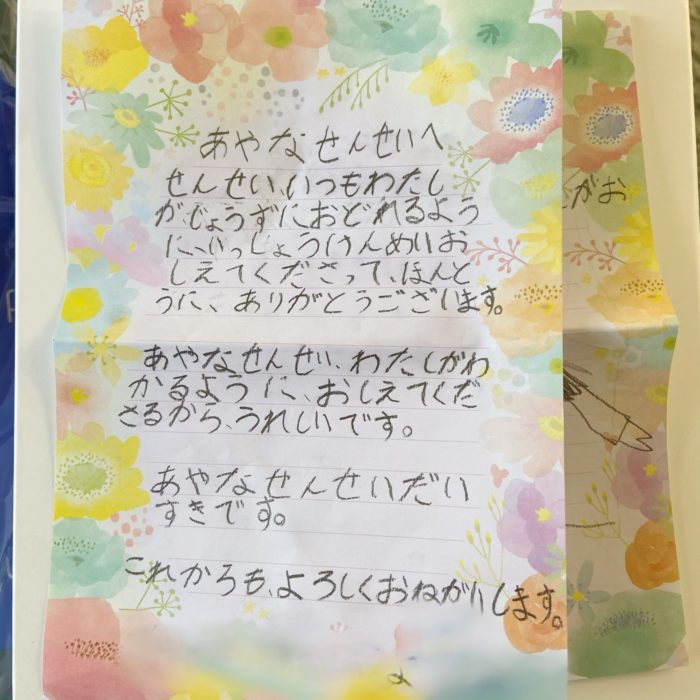 あやなせんせいへ
せんせい、いつもわたし
が、じょうずにおどれるよう
に、いっしょうけんめいお
しえてくださって、ほんと
うに、ありがとうございます。
あやなせんせい、わたしがわ
かるように、おしえてくだ
さるから、うれしいです。
あやなせんせいだい
すきです。
これからも、よろしくおねがいします。
がお